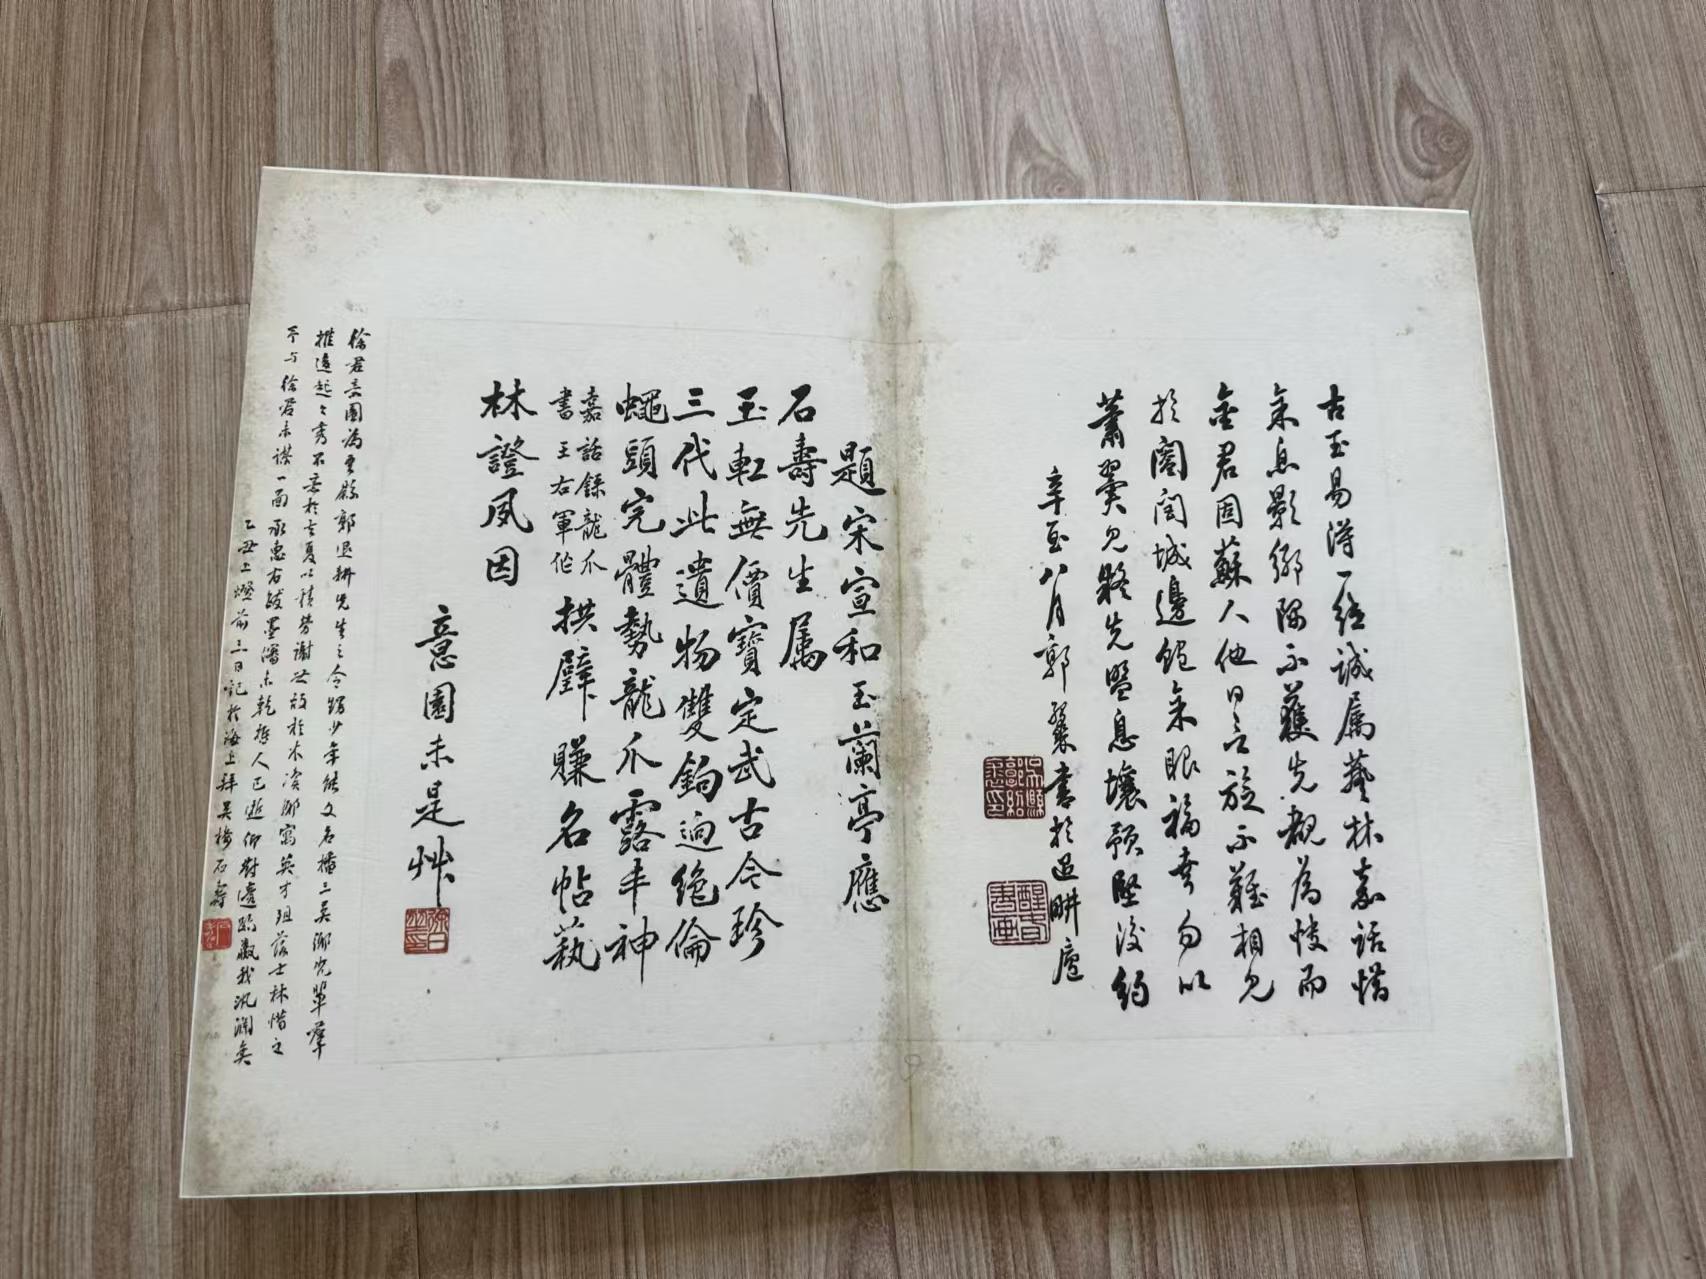 古玉易得一經誠屬藝林嘉話惜
余息影鄉隅不獲先覩為悵而
金君固蘇人他日言旋不難相見
於闔閭城邊飽余眼福幸勿以
蕭翼見疑先盟息壤預堅後約
辛酉八月郭 書於退耕廬
題宋宣和玉蘭亭應
石壽先生屬
玉虹無價寶定武古今珍
三代此遺物雙鉤迥絕倫
蠅頭完體勢龍爪露丰神
嘉話錄龍爪
書王右軍作
拱璧賺名帖藝
林證夙因
意園未是艸
徐君意園為吳縣郭退耕先生之令甥少年能文名播三吳鄉先輩羣
推遜起之秀不意於去夏以積勞謝世故於水 鄉寓英才殂落士林惜之
予与徐君未謀一面承惠右跋墨瀋未乾哲人已逝仰對遺蹟歔我汍瀾矣
乙丑上燈前三日記於海上拜吳楼石壽